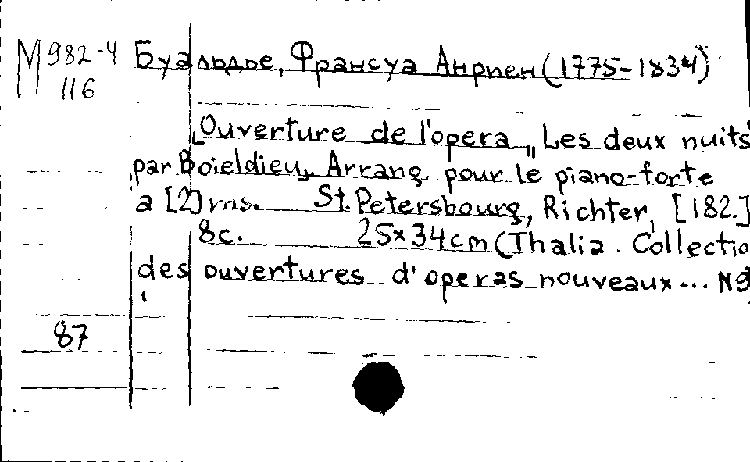 М 982-4 Буальдье, Франсуа Анриен (1775-1834)
116
Ouverture de l'opera „Les deux nuits"
par Boieldieu, Arrang pour le piano-forte
a [2] ms. St. Petersbourg, Richter, [182.]
8c. 25×34cm (Thalia. Collectio
des ouvertures d'operas nouveaux... N9
87